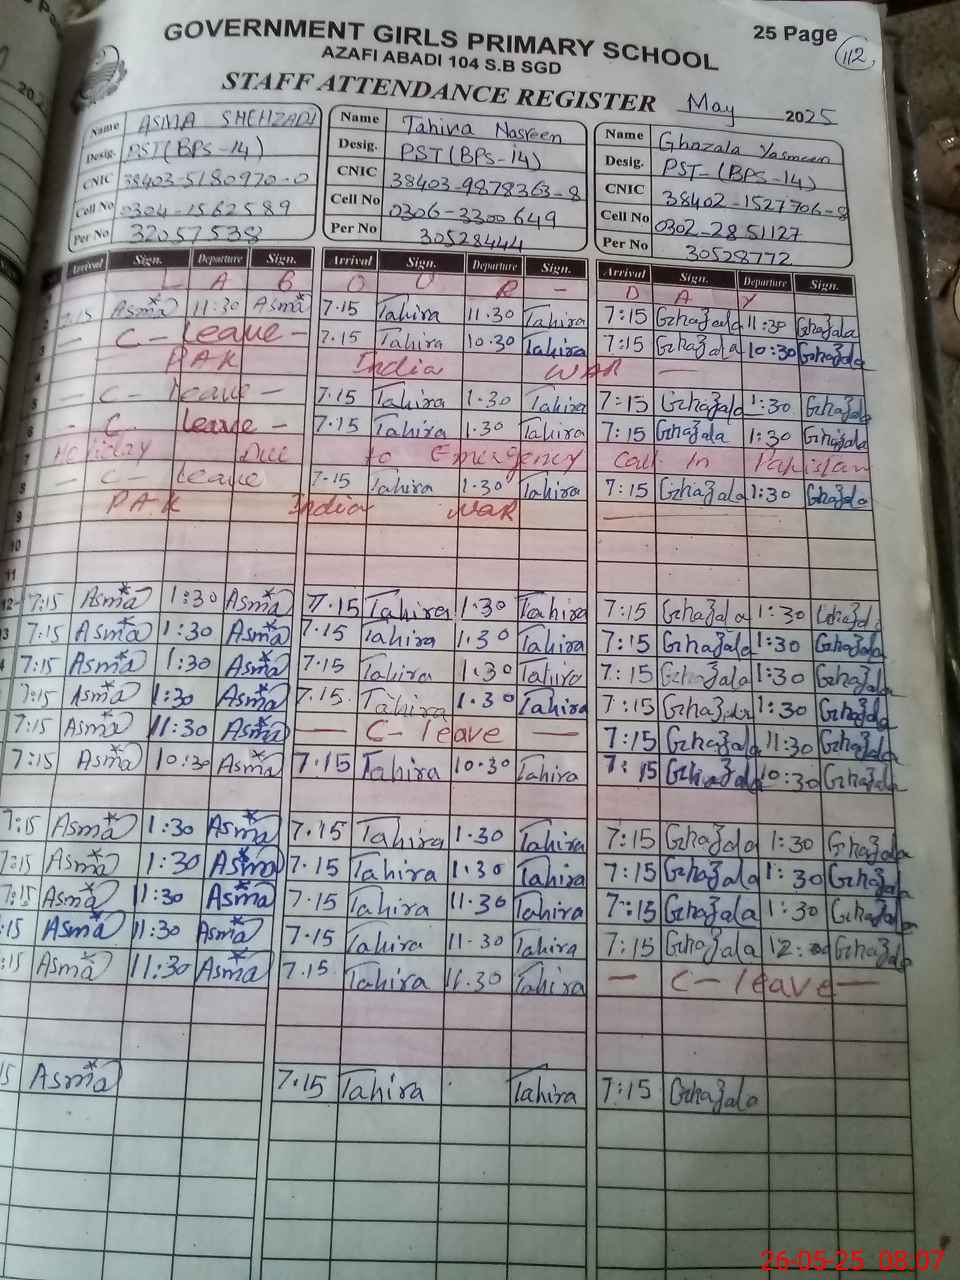 25 Page
112
GOVERNMENT GIRLS PRIMARY SCHOOL
AZAFI ABADI 104 S.B SGD
STAFF ATTENDANCE REGISTER May 2025
Name ASMA SHEHZADI Name Tahira Nasreen Name Ghazala Yasmeen
Desig. PST(BPS-14) Desig. PST(BPS-14) Desig. PST-(BPS-14)
CNIC 38403-5180970-0 CNIC 38403-9878363-8 CNIC 38402-1527706-8
Cell No 0304-1562589 Cell No 0306-3300649 Cell No 0302-2851127
Per No 32057538 Per No 30528444 Per No 30528772
Arrival Sign. Departure Sign. Arrival Sign. Departure Sign. Arrival Sign. Departure Sign.
L A B O U R - D A Y
2 7:15 Asma 11:30 Asma 7.15 Tahira 11.30 Tahira 7:15 Ghazala 11:30 Ghazala
3 - C - leave - 7.15 Tahira 10.30 Tahira 7:15 Ghazala 10:30 Ghazala
4 PAK India WAR -
5 - C - leave - 7.15 Tahira 1.30 Tahira 7:15 Ghazala 1:30 Ghazala
6 - C leave - 7.15 Tahira 1.30 Tahira 7:15 Ghazala 1:30 Ghazala
7 Holiday Due to Emergency Call In Pakistan
8 - C - leave 7.15 Tahira 1.30 Tahira 7:15 Ghazala 1:30 Ghazala
9 PAK India WAR
10
11
12 7:15 Asma 1:30 Asma 7.15 Tahira 1.30 Tahira 7:15 Ghazala 1:30
13 7:15 Asma 1:30 Asma 7.15 Tahira 1.30 Tahira 7:15 Ghazala 1:30 Ghazala
4 7:15 Asma 1:30 Asma 7.15 Tahira 1.30 Tahira 7:15 Ghazala 1:30 Ghazala
7:15 Asma 1:30 Asma 7.15. Tahira 1.30 Tahira 7:15 Ghazala 1:30 Ghazala
7:15 Asma 11:30 Asma - C- leave - 7:15 Ghazala 11:30 Ghazala
7:15 Asma 10:30 Asma 7.15 Tahira 10.30 Tahira 7:15 Ghazala 10:30 Ghazala
7:15 Asma 1:30 Asma 7.15 Tahira 1.30 Tahira 7:15 Ghazala 1:30 Ghazala
7:15 Asma 1:30 Asma 7.15 Tahira 1.30 Tahira 7:15 Ghazala 1:30 Ghazala
7:15 Asma 11:30 Asma 7.15 Tahira 11.30 Tahira 7:15 Ghazala 1:30 Ghazala
:15 Asma 11:30 Asma 7.15 Tahira 11.30 Tahira 7:15 Ghazala 12:00 Ghazala
:15 Asma 11:30 Asma 7.15 Tahira 11.30 Tahira - C- leave -
15 Asma 7.15 Tahira Tahira 7:15 Ghazala
26-05-25 08:07